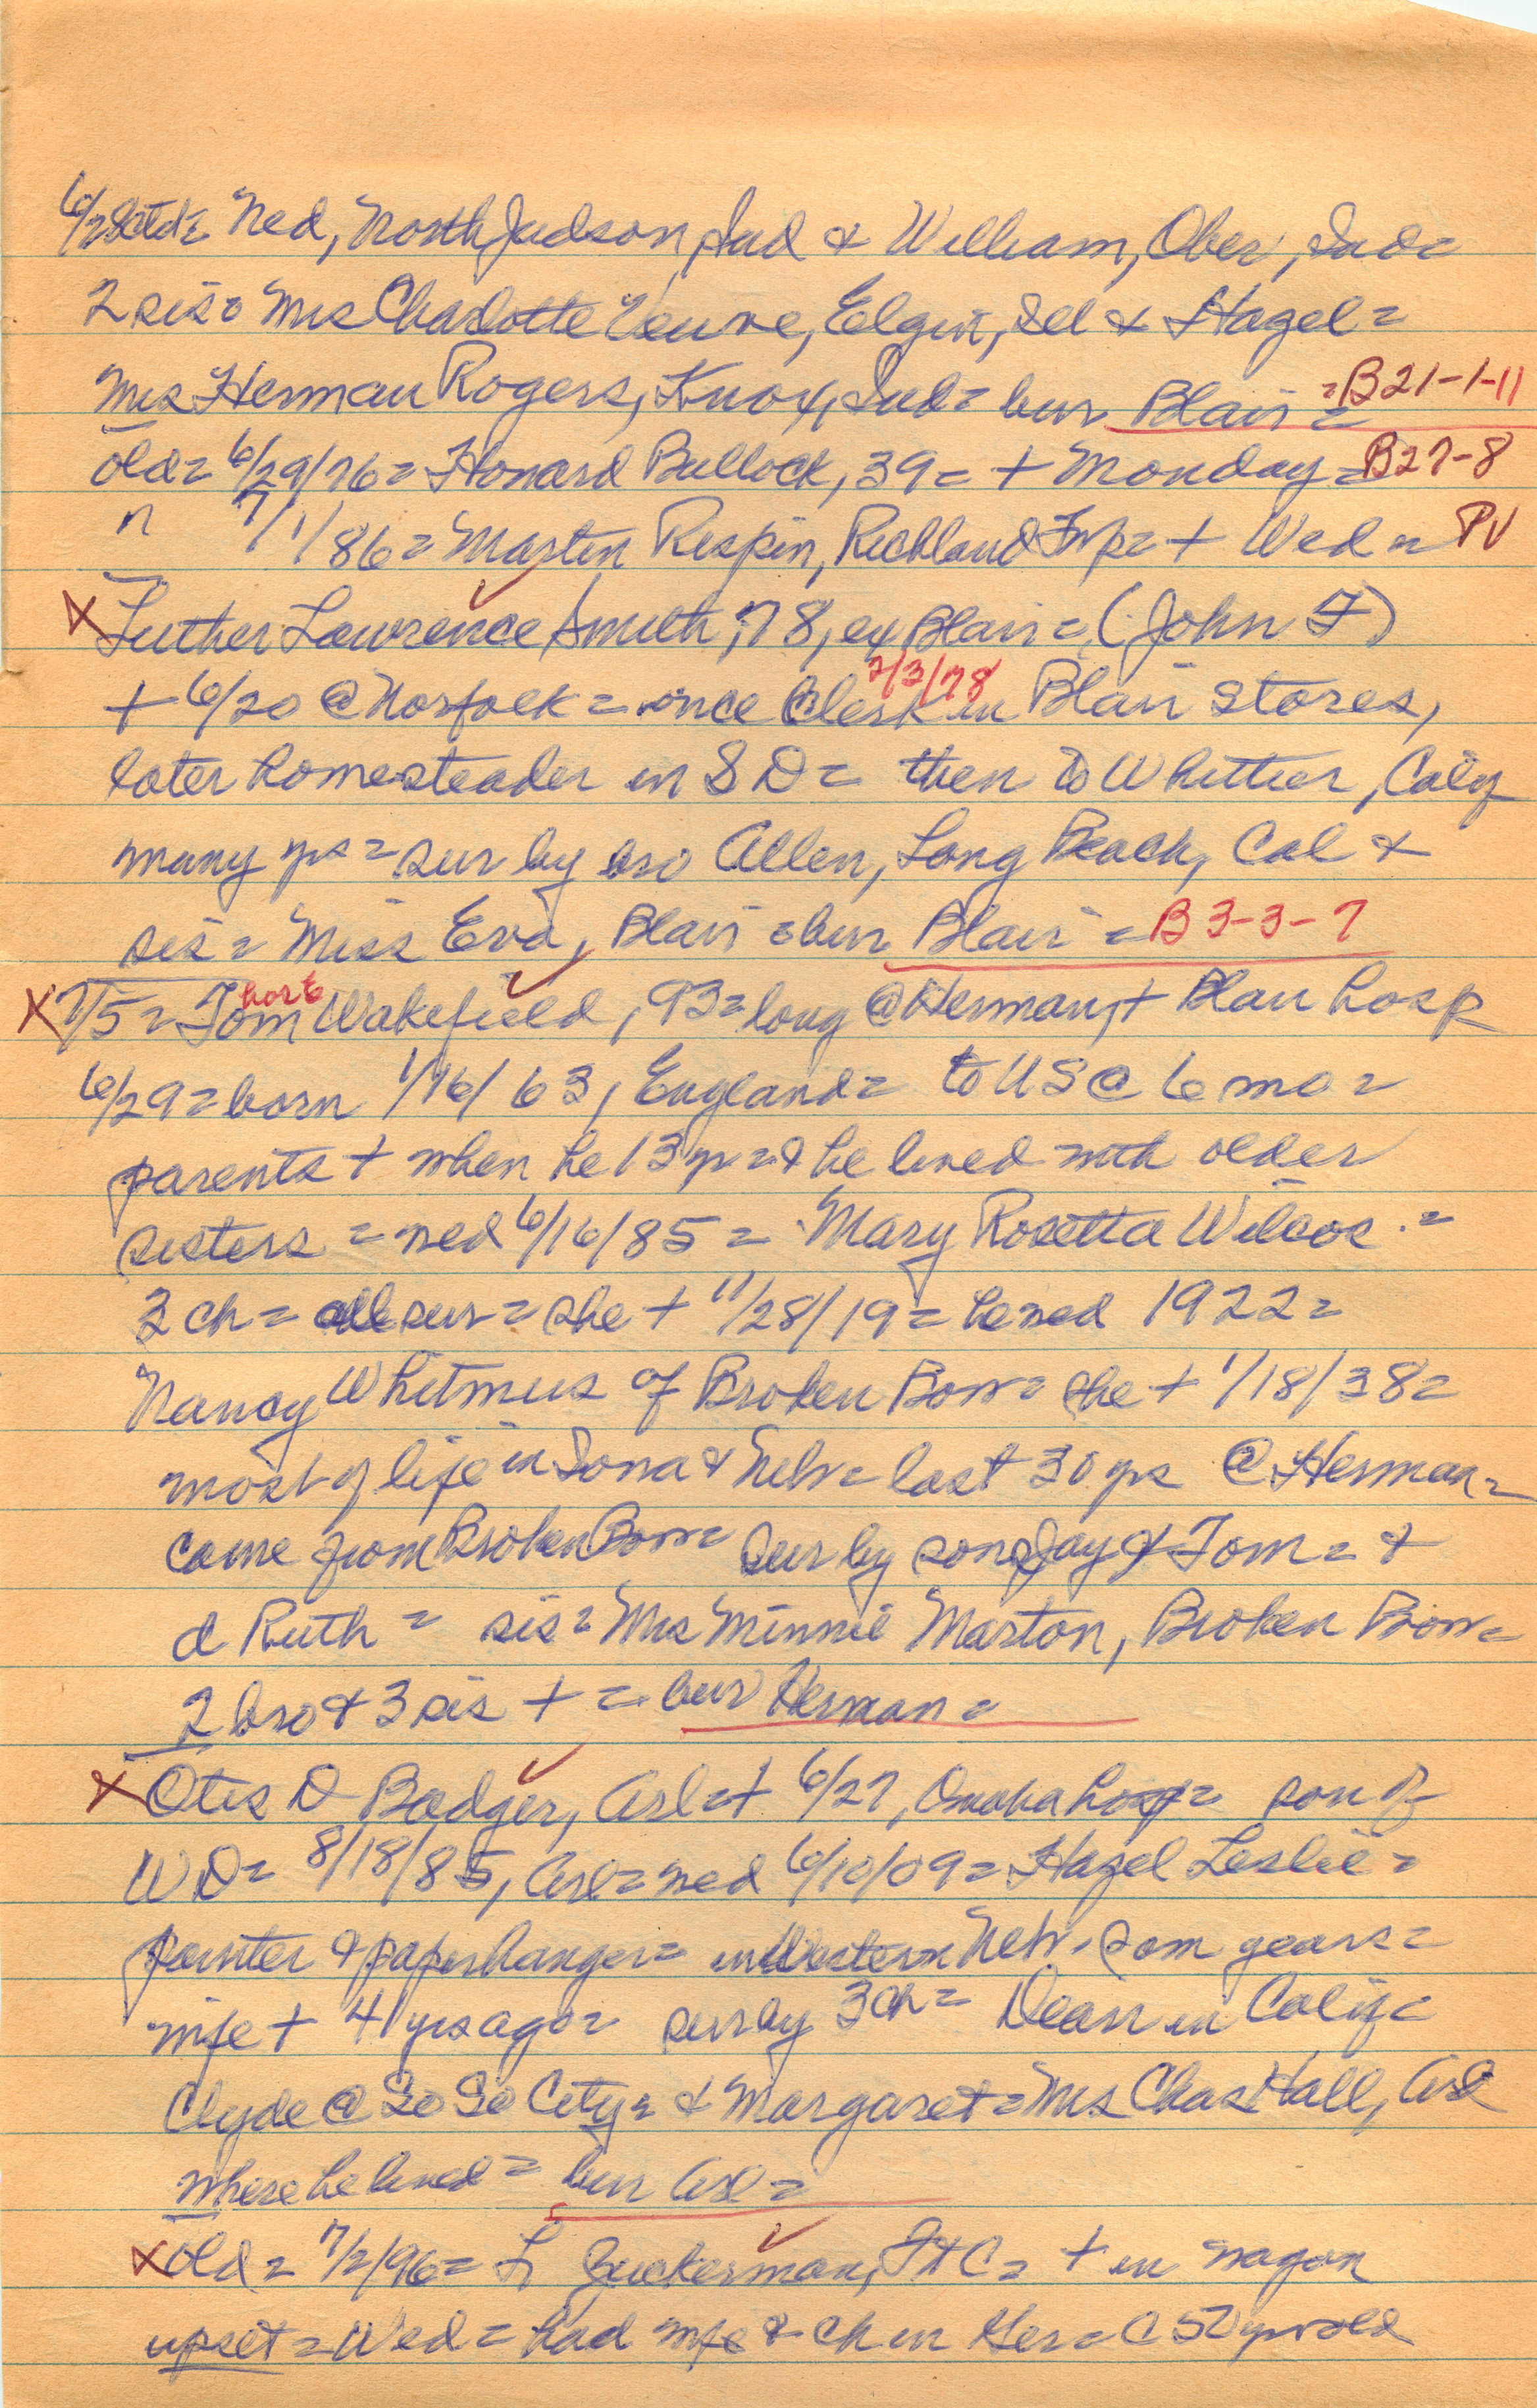 6/28ctd= Ned, North Judson, Ind & William, Ober, Ind=
2 sis= Mrs Charlotte Yeuve, Elgin, Ill & Hazel=
Mrs Herman Rogers, Knox, Ind= bur Blair = =B21-1-11
old= 6/29/76= Howard Bullock, 39= + Monday= B27-8
" 7/1/86= Martin Rispin, Richland Twp= + Wed = PV
X Luther Lawrence Smith, 78, ex Blair= (John F)
+ 6/20 @ Norfolk = once Clerk in Blair stores,
7/3/78
later homesteader in S D= then to Whittier, Calif
many yrs = sur by bro Allen, Long Beach, Cal &
sis = Miss Eva, Blair = bur Blair = B 3-3-7
X 7/5= Tom Wakefield, 93= long @ Herman, + Blair hosp
6/29= born 1/16/63, England= to US @ 6 mo =
parents + when he 13 yr = & he lived with older
sisters = med 6/16/85 = Mary Rosetta Wilcox. =
3 ch = all sur = she + 11/28/19 = he med 1922 =
Nancy Whitmus of Broken Bow= she + 1/18/38=
most of life in Iowa & Neb = last 30 yrs @ Herman =
came from Broken Bow= sur by sons Jay & Tom = &
d Ruth = sis = Mrs Minnie Marton, Broken Bow=
2 bro & 3 sis + = bur Herman =
X Otis D Badger, Arl = + 6/27, Omaha hosp= son of
W D= 8/18/85, Arl = med 6/10/09= Hazel Leslie =
painter & paperhanger= in Western Neb. som years =
wife + 41 yrs ago = sur by 3 ch = Dean in Calif =
Clyde @ So So City = & Margaret = Mrs Chas Hall, Arl
where he lived = bur Arl =
X old = 7/2/96= L Zuckerman, Ft C = + in wagon
upset = Wed = had wife & ch in Ger = C 50 yrs old